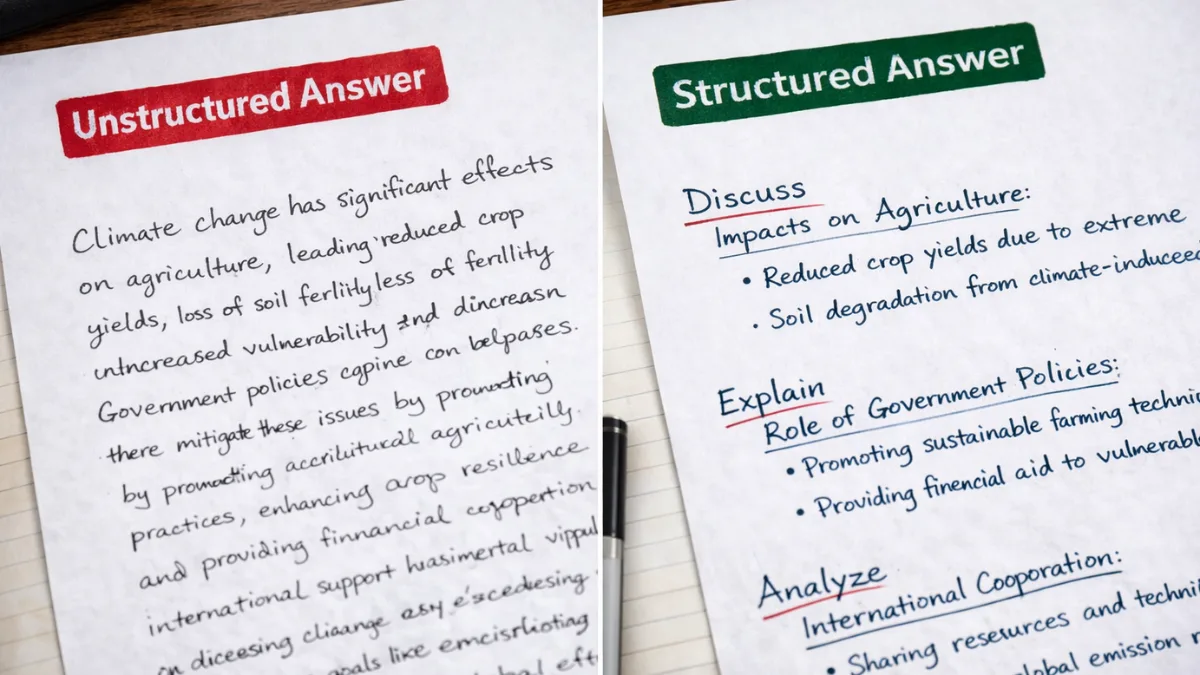 Unstructured Answer
Climate change has significant effects
on agriculture, leading reduced crop
yields, loss of soil ferlilty less of ferillity
untncreased vulnerability and dincreasn
Government policies cgpine con belpases.
there mitigate these issues by promoting
by promoting accrilitural agricuteilly.
practices, enhancing arop resillence
and providing finnancial cogopertion
international support hwasimertal
on diceesing cliaange asy e'scedesing
like emcisrlioting
Structured Answer
Discuss
Impacts on Agriculture:
• Reduced crop yields due to extreme
• Soil degradation from climate-induceed
Explain
Role of Government Policies:
• Promoting sustainable farming
• Providing finencial aid to
Analyze
International Cooporation:
• Sharing reseurces and
emission